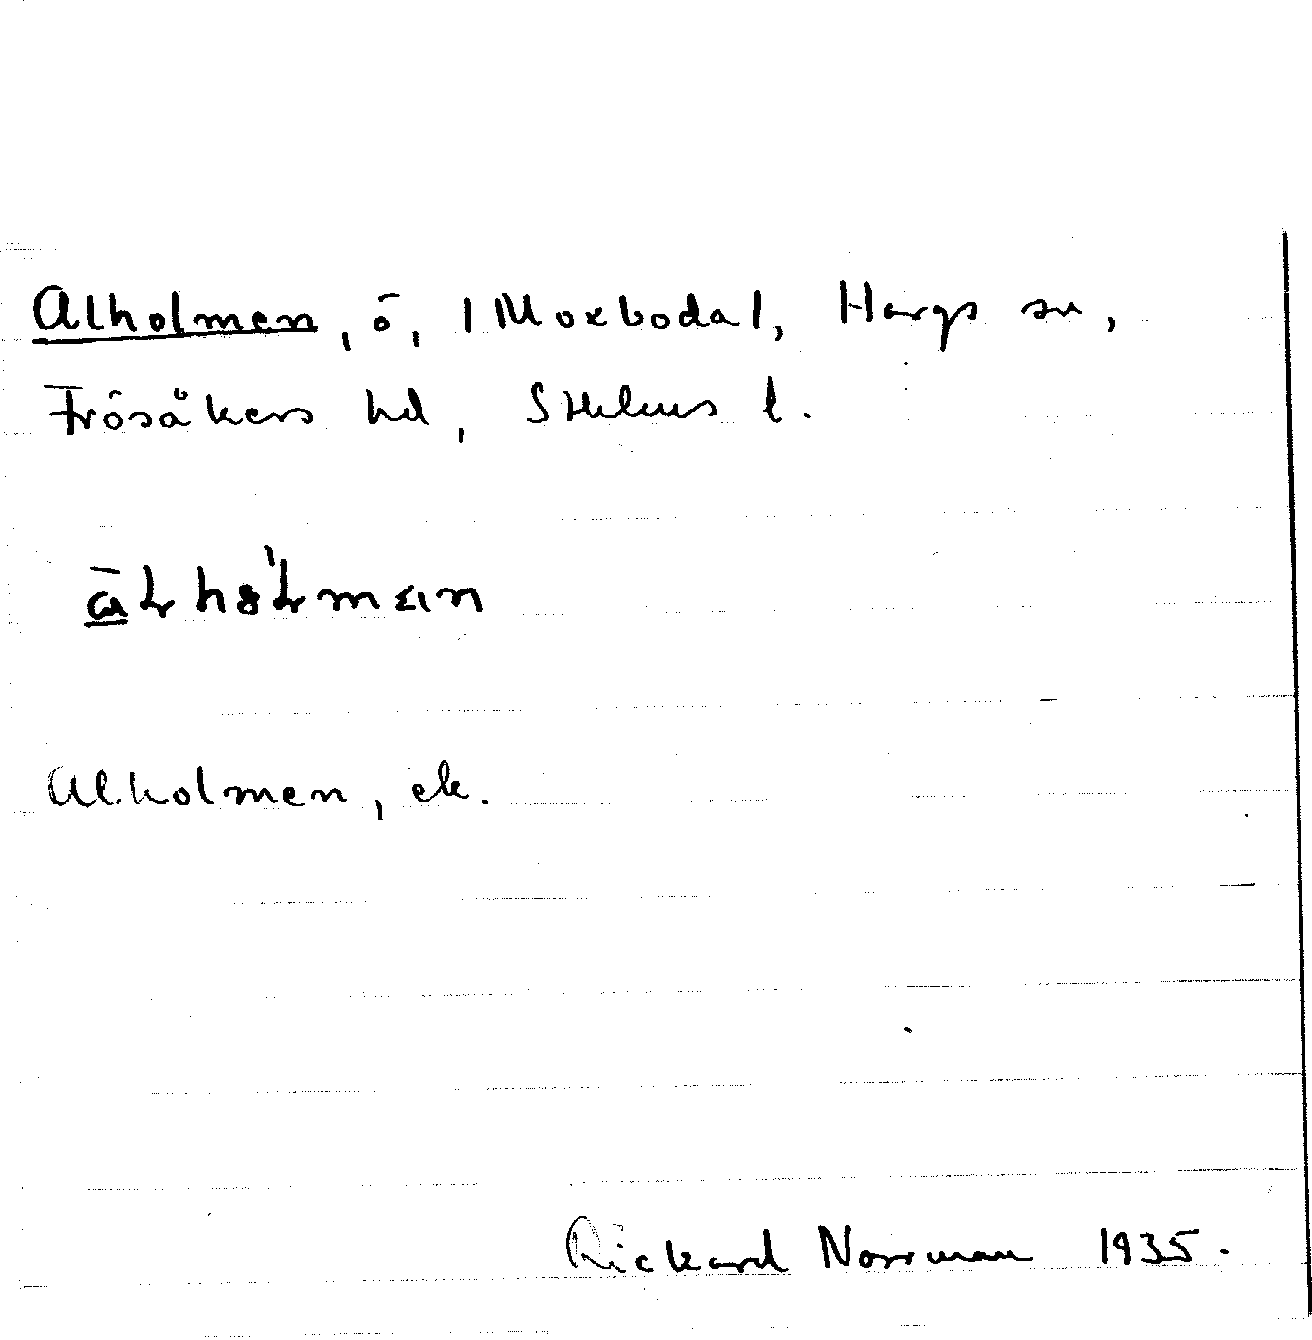 Alholmen, ö, 1 Moxbodal, Hargs sn,
Frösåkers hd, Sthlms l.
Alholmen, ek.
Rickard Norrman 1935.